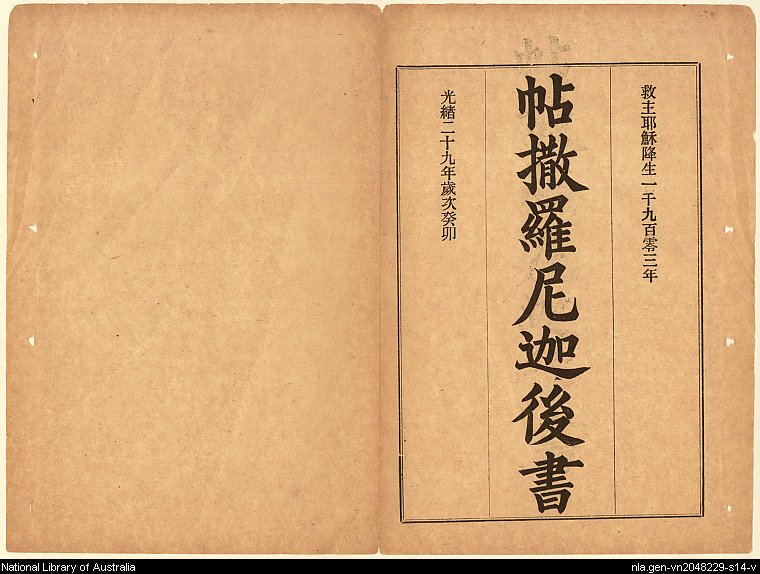 救主耶穌降生一千九百零三年
帖撒羅尼迦後書
光緒二十九年歲次癸卯
National Library of Australia
nla.gen-vn2048229-s14-v